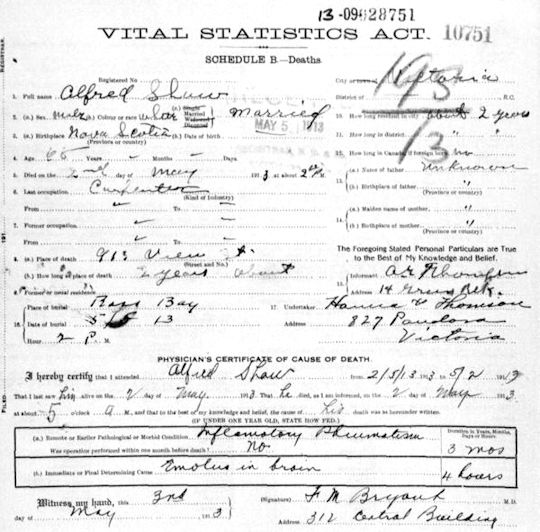 13-09028751
VITAL STATISTICS ACT. 10751
SCHEDULE B.—Deaths
Registered No City or Victoria
1. Full name Alfred Shaw District of B.C.
2. (a.) Sex male (b.) Colour or race (c.) Single Married Widowed Divorced Married 10. How long resident in about 2 years
MAY 5 1913
193
13
3. (a.) Birthplace Nova Scotia 11. How long in district " "
(Province or country)
4. Age 65 Years - Months - Days. 12. How long in Canada if foreign born no
5. Died the 2nd day of May 1913, at about 2 M. 13. (a.) Name of father Unknown
6. Last occupation Carpenter (b.) Birthplace of father "
(Kind of Industry) (Province or country)
From " To " 14. (a.) Maiden name of mother "
7. Former occupation " (b.) Birthplace of mother "
From " To " (Province or country)
8. (a.) Place of death 913 View St. The Foregoing Stated Personal Particulars are True
(Street and No.) to the Best of My Knowledge and Belief.
(b.) How long at place of death 2 years about
9. Former or usual residence 15. Informant
Address 14
Place of burial Ross Bay 17. Undertaker Hanna & Thomson
16. Date of burial 5/5 13 Address 827 Pandora
Hour 2 P. M. Victoria
PHYSICIAN'S CERTIFICATE OF CAUSE OF DEATH.
I hereby certify that I attended Alfred Shaw from 2/5/13 1913 to 5/2 1913
That I last saw him alive on the 2 day of May 1913 That he died, as I am informed, on the 2 day of May 1913
at about 5 o'clock a M., and that to the best of my knowledge and belief, the cause of his death was as hereunder written.
(IF UNDER ONE YEAR OLD, STATE HOW FED.)
Duration in Years, Months, Days or Hours.
(a.) Remote or Earlier Pathological or Morbid Condition Inflamatory Rheumatism
Was operation performed within one month before death? No 3 mos
(b.) Immediate or Final Determining Cause Emolus in brain 4 hours
Witness my hand, this 3rd (Signature) F M Bryant M.D.
day of May 1913 Address 312 Central Building